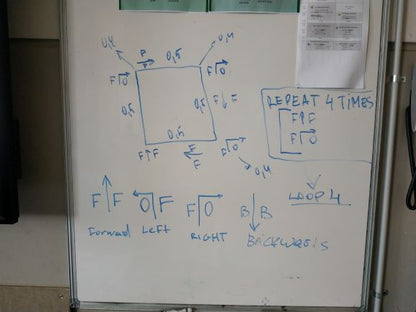 0,4
F
F
0,5
0,4
F 0
F 0
0,5
0,5
F F
REPEAT 4 TIMES
F F
F 0
0,5
F F
F
F
F 0
0,4
LOOP 4
F F
0 F
F 0
B B
Forward
Left
RIGHT
BACKWARDS